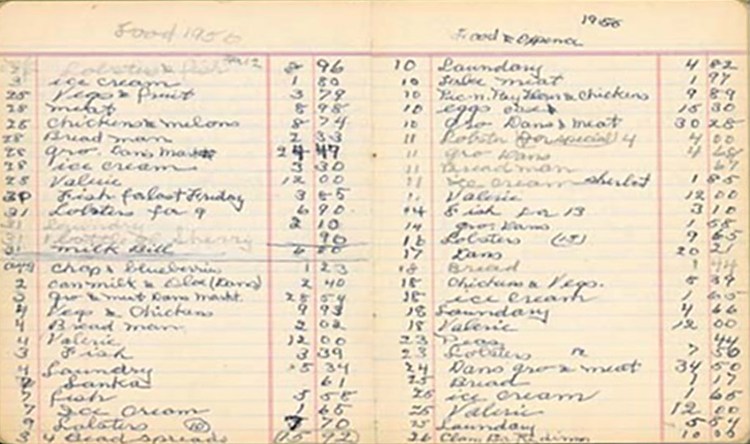 Food 1956
Lobsters & fish 8 96
31 ice cream 1 80
25 Vegs & fruit 3 79
28 meat 8 98
28 Chickens & melons 8 74
28 Bread man 2 33
28 gro. Dans 24 47
28 ice cream 3 30
28 Valerie 12 00
Fish for last Friday 3 85
31 Lobsters for 9 6 90
31 Laundry 2 10
31 Sherry 90
31 milk bill 6
aug chop & blueberries 1 23
2 can milk & (Dans) 2 40
3 gro & meat Dans Markt. 25 54
4 Vegs & Chickens 9 93
4 Bread man 2 02
4 Valerie 12 00
3 Fish 3 39
4 Laundry 5 34
7 Sanka 61
7 fish 5 58
7 Ice Cream 1 65
9 Lobsters 7 70
3 4 Bead spreads (15 92)
1956
Food & Expence
10 Laundary 4 82
10 meat 1 97
10 Pic-n-Pay & Chickens 9 89
10 eggs case 15 30
10 gro Dans & meat 30 28
11 Lobster for special 4 4 00
11 gro Dans 4 68
11 Bread man 67
11 Ice cream sherbet 1 85
11 Valerie 12 00
14 Fish for 13 3 10
14 gro Dans 1 58
16 Lobsters (15) 9 65
17 Dans 20 21
18 Bread 1 44
18 Chickens & Vegs. 5 39
18 ice cream 1 65
18 Laundary 4 66
18 Valerie 12 00
23 Peas 44
23 Lobsters 12 7 56
24 Dans gro & meat 34 50
25 Bread 1 17
25 ice cream 1 65
25 Valerie 12 00
25 Laundary 5 54
26 Clam 10 00